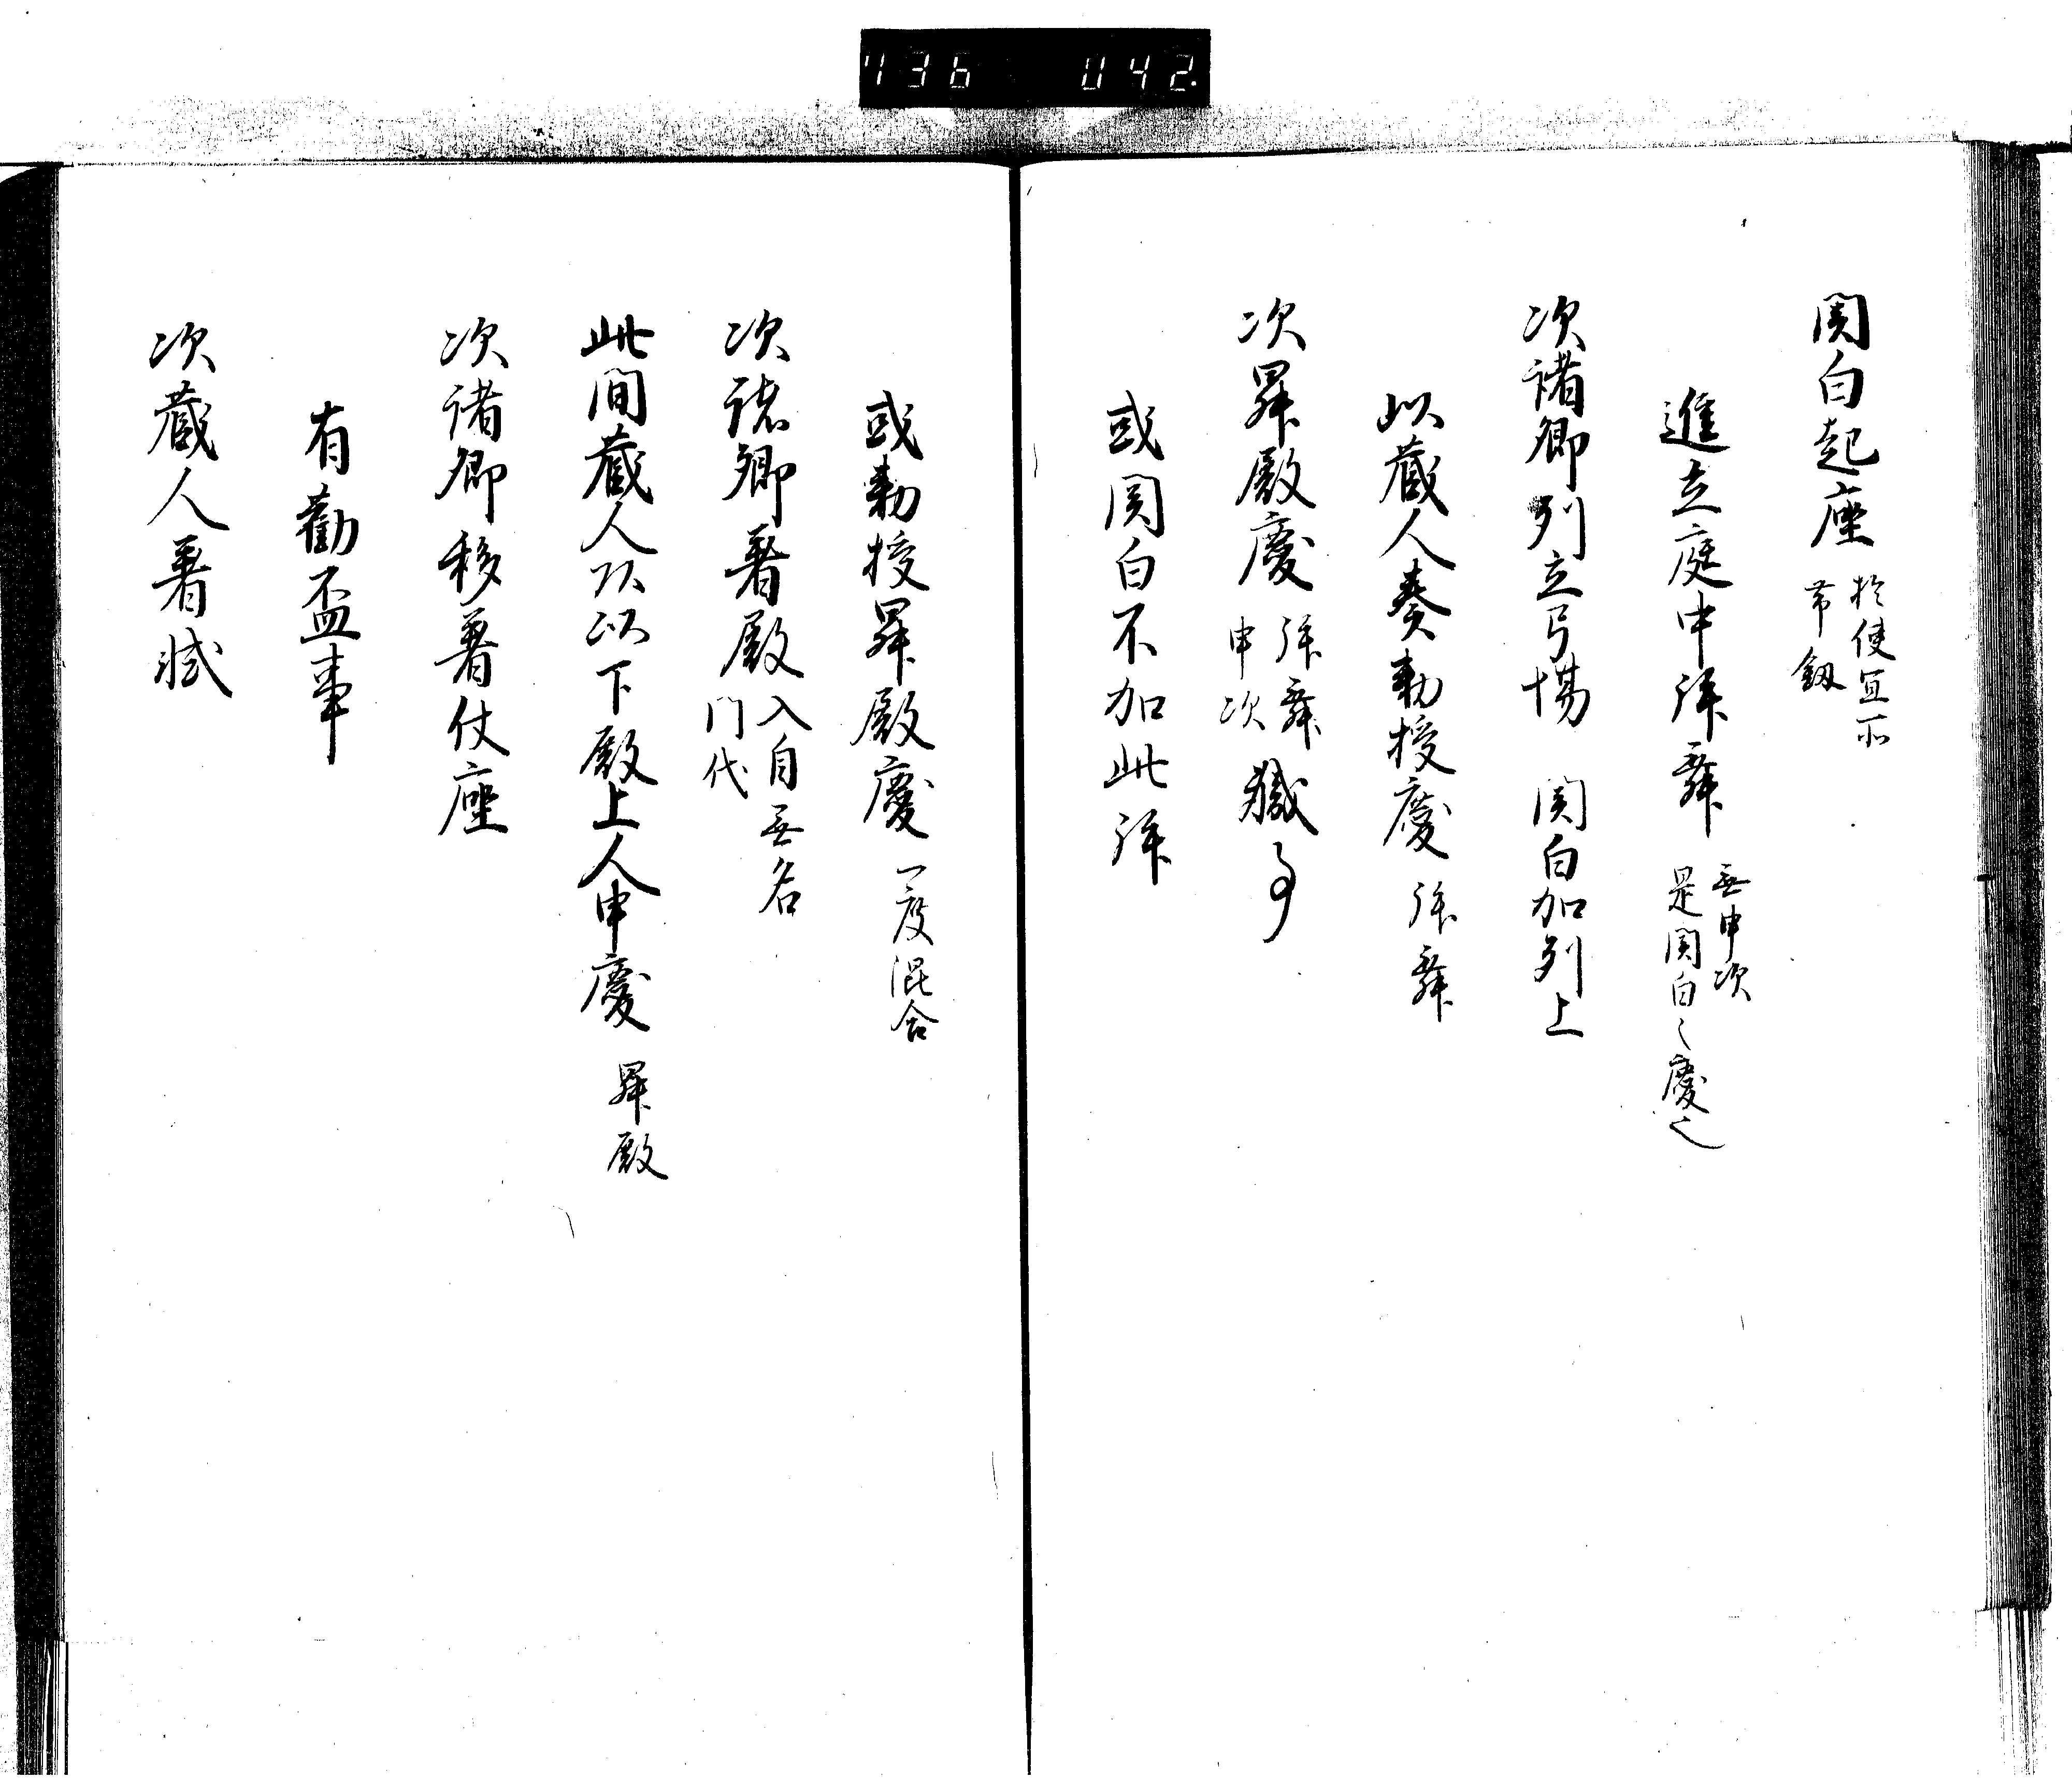 関白起座 於便宜所
帯釼
進立庭中拝舞 無申次
是関白之慶也
次諸卿列立弓場 関白加列上
以蔵人奏勅授慶 拝舞
次昇殿慶 拝舞
申次 職事
或関白不加此拝
或勅授昇殿慶 一度混合
次諸卿着殿 入自無名
門代
此間蔵人頭以下殿上人申慶 昇殿
次諸卿移着仗座
有勧盃事
次蔵人着
736 042